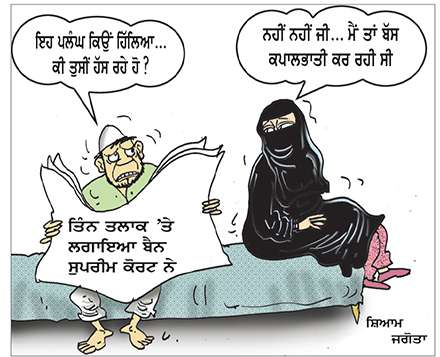 ਇਹ ਪਲੰਘ ਕਿਉਂ ਹਿੱਲਿਆ...
ਕੀ ਤੁਸੀਂ ਹੱਸ ਰਹੇ ਹੋ?
ਨਹੀਂ ਨਹੀਂ ਜੀ... ਮੈਂ ਤਾਂ ਬੱਸ
ਕਪਾਲਭਾਤੀ ਕਰ ਰਹੀ ਸੀ
ਤਿੰਨ ਤਲਾਕ 'ਤੇ
ਲਗਾਇਆ ਬੈਨ
ਸੁਪਰੀਮ ਕੋਰਟ ਨੇ
ਸ਼ਿਆਮ
ਜਗੋਤਾ